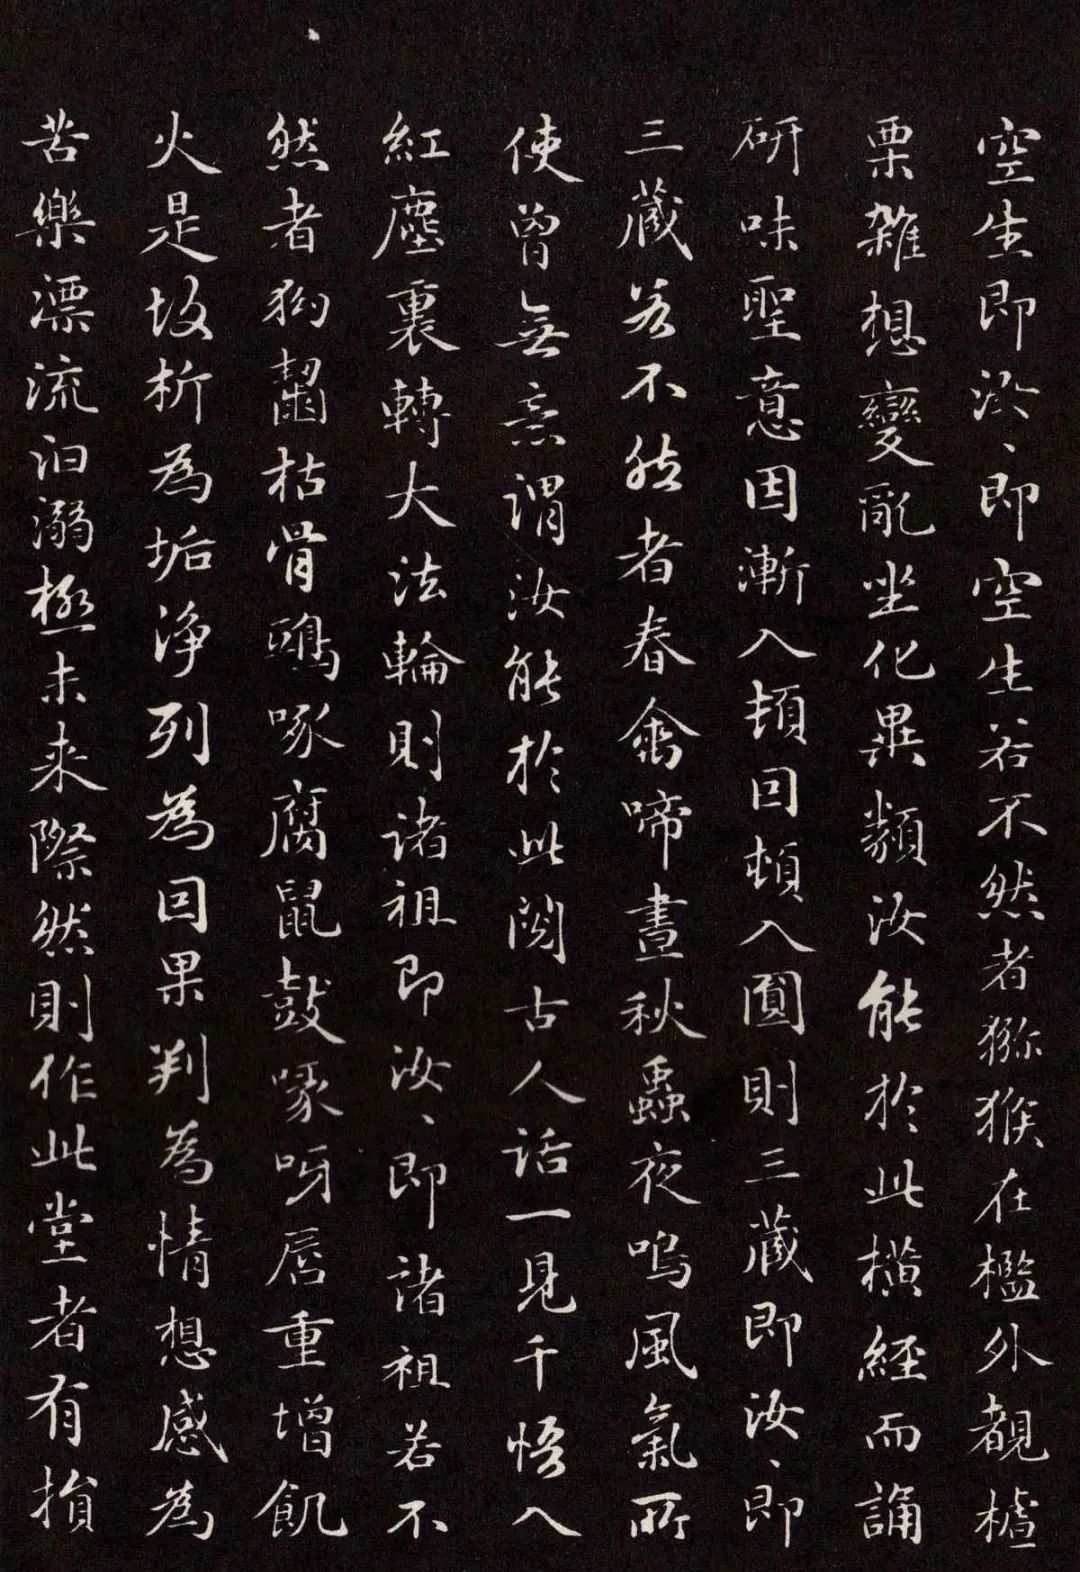 空生即汝、即空生若不然者猕猴在檻外覩樝
栗雜想變亂坐化異類汝能於此橫經而誦
研味聖意因漸入頓回頓入圓則三藏即汝、即
三藏若不然者春禽啼晝秋蟲夜鳴風氣所
使曾無意謂汝能於此閱古人話一見千悟入
紅塵裏轉大法輪則諸祖即汝、即諸祖若不
然者狗齧枯骨鴟啄腐鼠鼓喙呀唇重增飢
火是故析為垢淨列為因果判為情想感為
苦樂漂流汩溺極未來際然則作此堂者有損